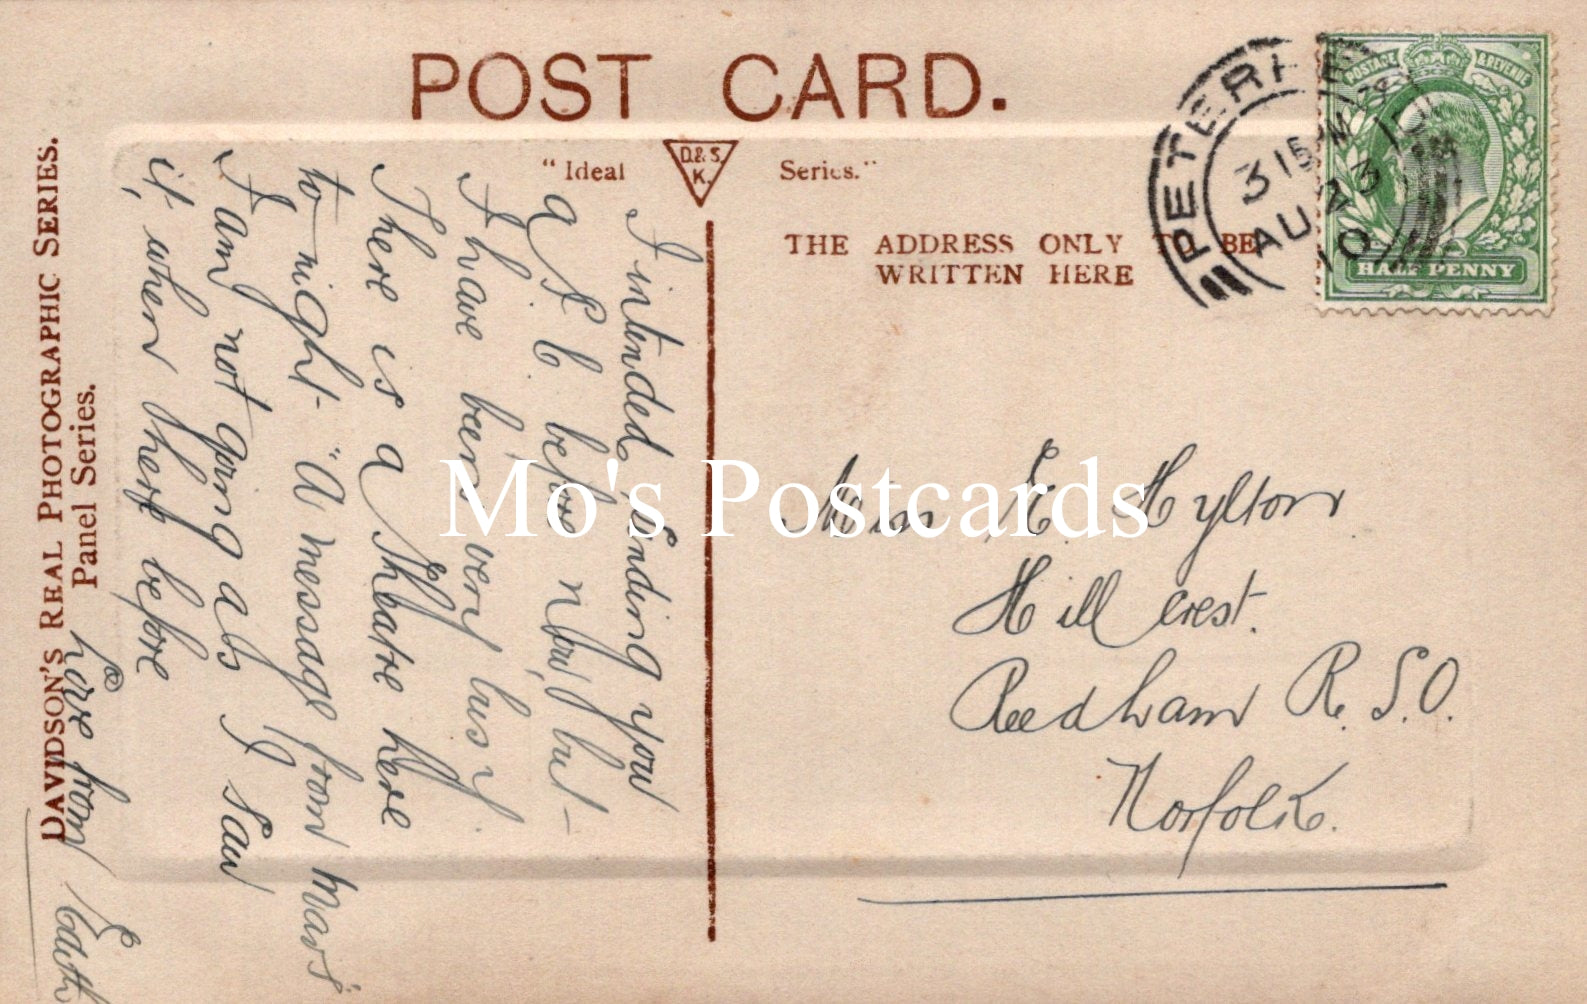 POST CARD.
"Ideal D.& S. K. Series."
THE ADDRESS ONLY TO BE
WRITTEN HERE
PETERHE
3 15 PM
AU 23
10
POSTAGE & REVENUE
HALF PENNY
DAVIDSON'S REAL PHOTOGRAPHIC SERIES.
Panel Series.
I intended sending you
a P.C before now, but
I have been very busy.
There is a Theatre here
to night - "A message from Mars"
I am not going as I saw
it, when there before
Love from Edith
Miss E. Hylton
Hill crest.
Reedham R.S.O.
Norfolk.
Mo's Postcards